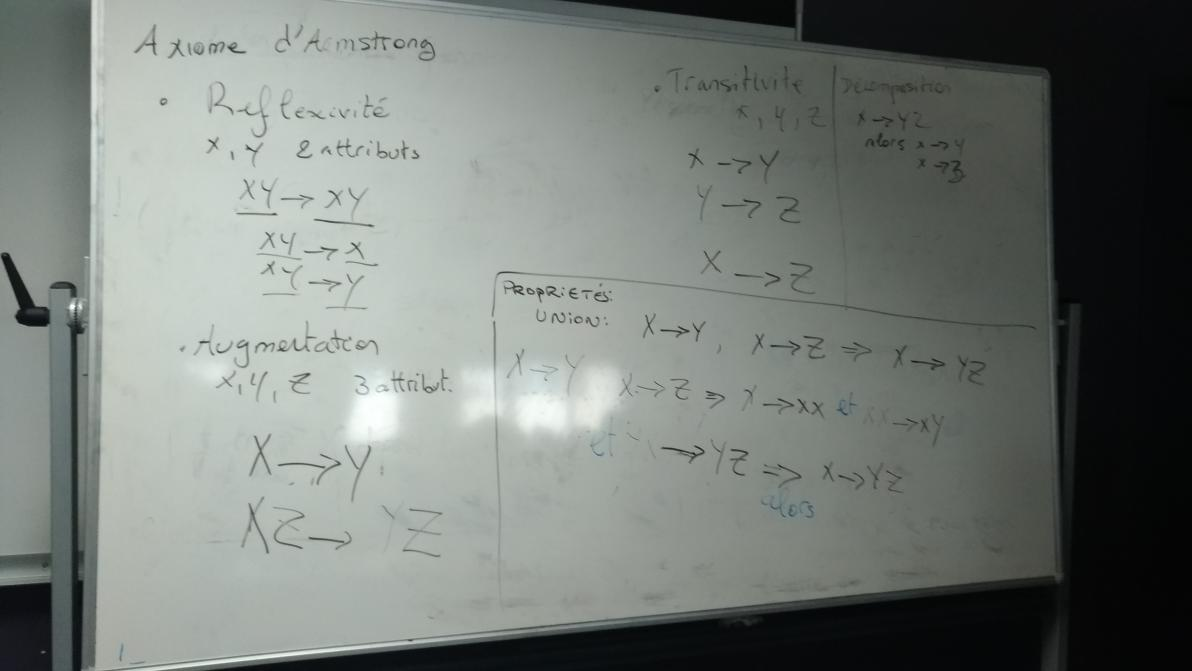 Axiome d'Armstrong
• Reflexivité
X, Y 2 attributs
XY → XY
XY → X
XY → Y
• Augmentation
X, Y, Z 3 attribut.
X → Y
XZ → YZ
• Transitivité
X, Y, Z
X → Y
Y → Z
X → Z
Décomposition
X → YZ
alors X → Y
X → Z
PROPRIETÉS:
UNION: X → Y, X → Z ⇒ X → YZ
X → Y X → Z ⇒ X → XX et XX → XY
et → YZ ⇒ X → YZ
alors